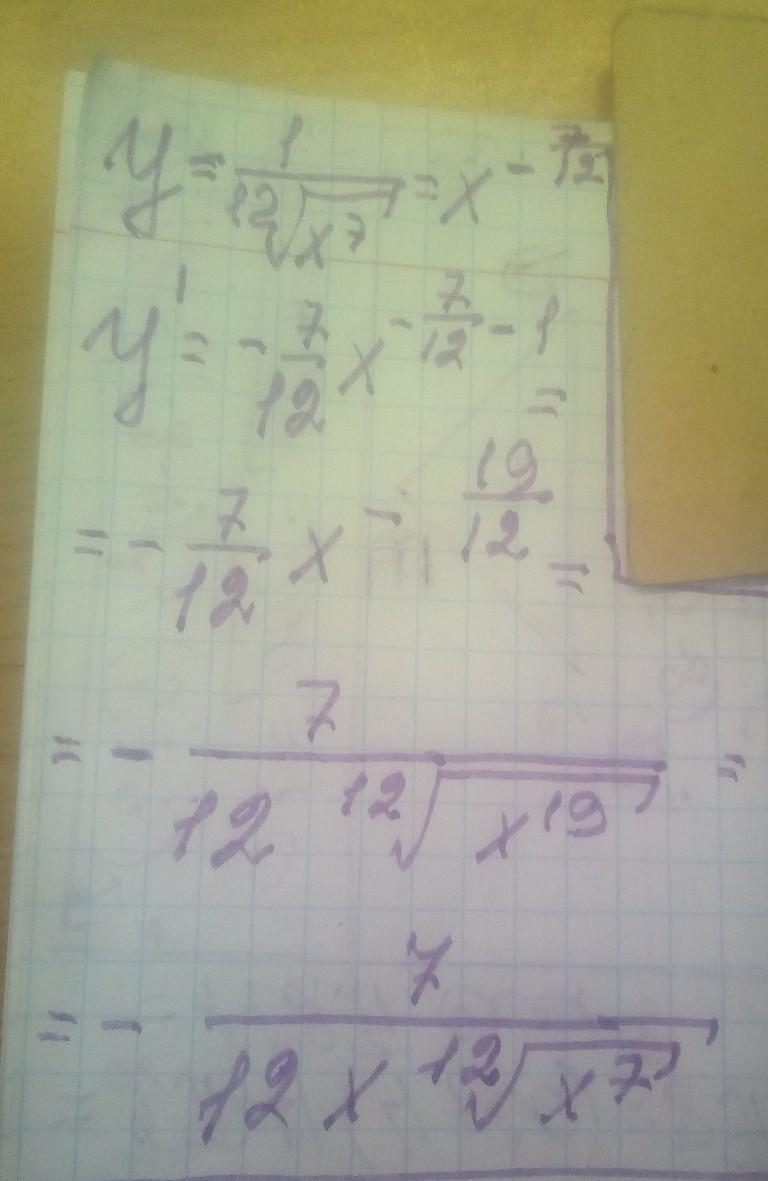 y = 1/¹²√x⁷ = x^(-7/12)
y' = -7/12 x^(-7/12 - 1) =
= - 7/12 x^(-19/12) =
= - 7/(12 ¹²√x¹⁹) =
= - 7/(12 x ¹²√x⁷)